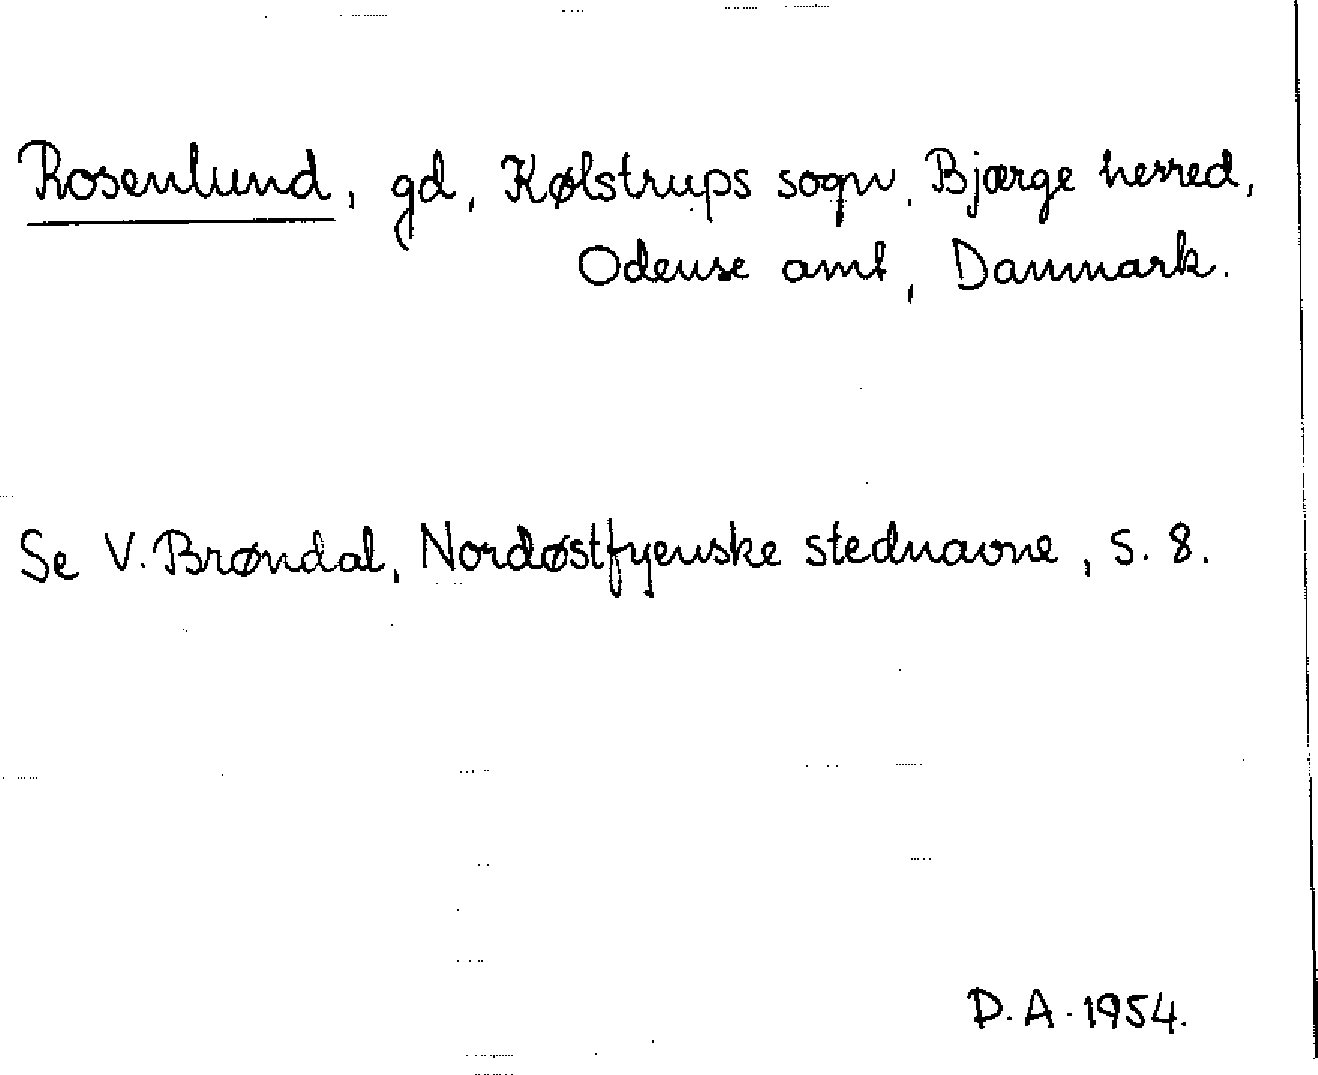 Rosenlund, gd, Kølstrups sogn, Bjærge herred,
Odense amt, Danmark.
Se V. Brøndal, Nordøstfyenske stednavne, s. 8.
D. A. 1954.